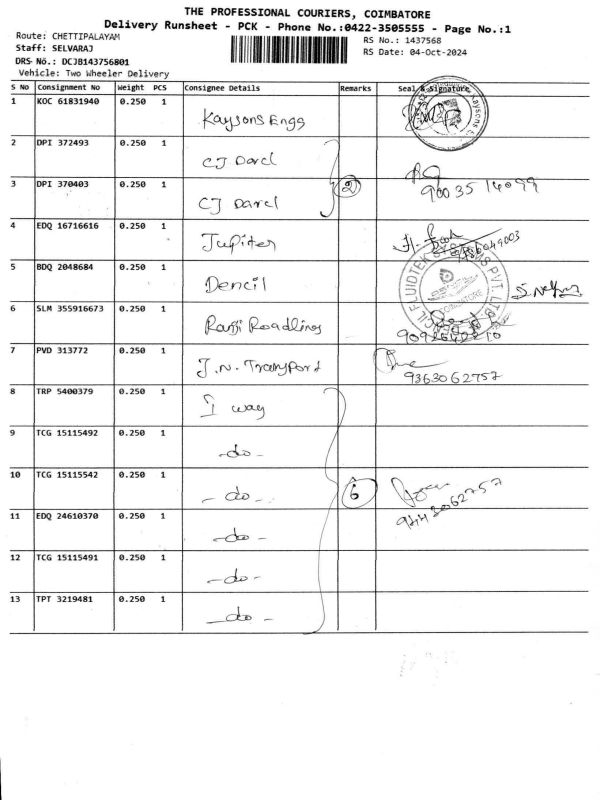 THE PROFESSIONAL COURIERS, COIMBATORE
Delivery Runsheet - PCK - Phone No.:0422-3505555 - Page No.:1
Route: CHETTIPALAYAM
RS No.: 1437568
Staff: SELVARAJ
RS Date: 04-Oct-2024
DRS No.: DCJB143756801
Vehicle: Two Wheeler Delivery
S No Consignment No Weight PCS Consignee Details Remarks Seal & Signature
1 KOC 61831940 0.250 1 Kaysons Engg
2 DPI 372493 0.250 1 CJ Darcl
3 DPI 370403 0.250 1 CJ Darcl 2
4 EDQ 16716616 0.250 1 Jupiter
5 BDQ 2048684 0.250 1 Dencil
6 SLM 355916673 0.250 1 Roadlines
7 PVD 313772 0.250 1 J.N. Transport 9363062757
8 TRP 5400379 0.250 1 I way
9 TCG 15115492 0.250 1 -do-
10 TCG 15115542 0.250 1 -do- 6 9443062757
11 EDQ 24610370 0.250 1 -do-
12 TCG 15115491 0.250 1 -do-
13 TPT 3219481 0.250 1 -do-